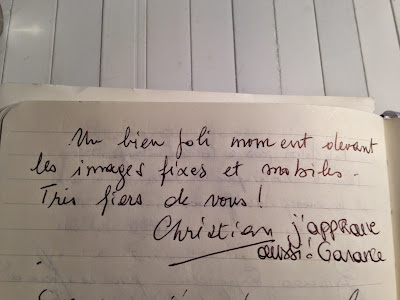 Un bien joli moment devant
les images fixes et mobiles.
Très fiers de vous !
Christian j'approuve
aussi ! Garance